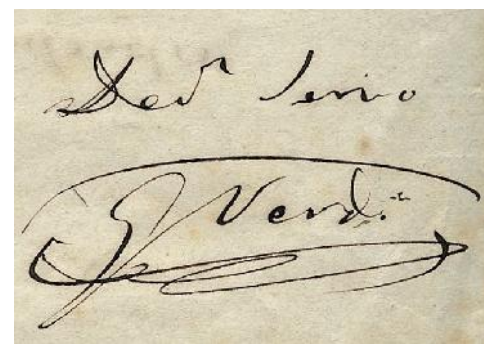 Devᵐ Servo
G Verdi